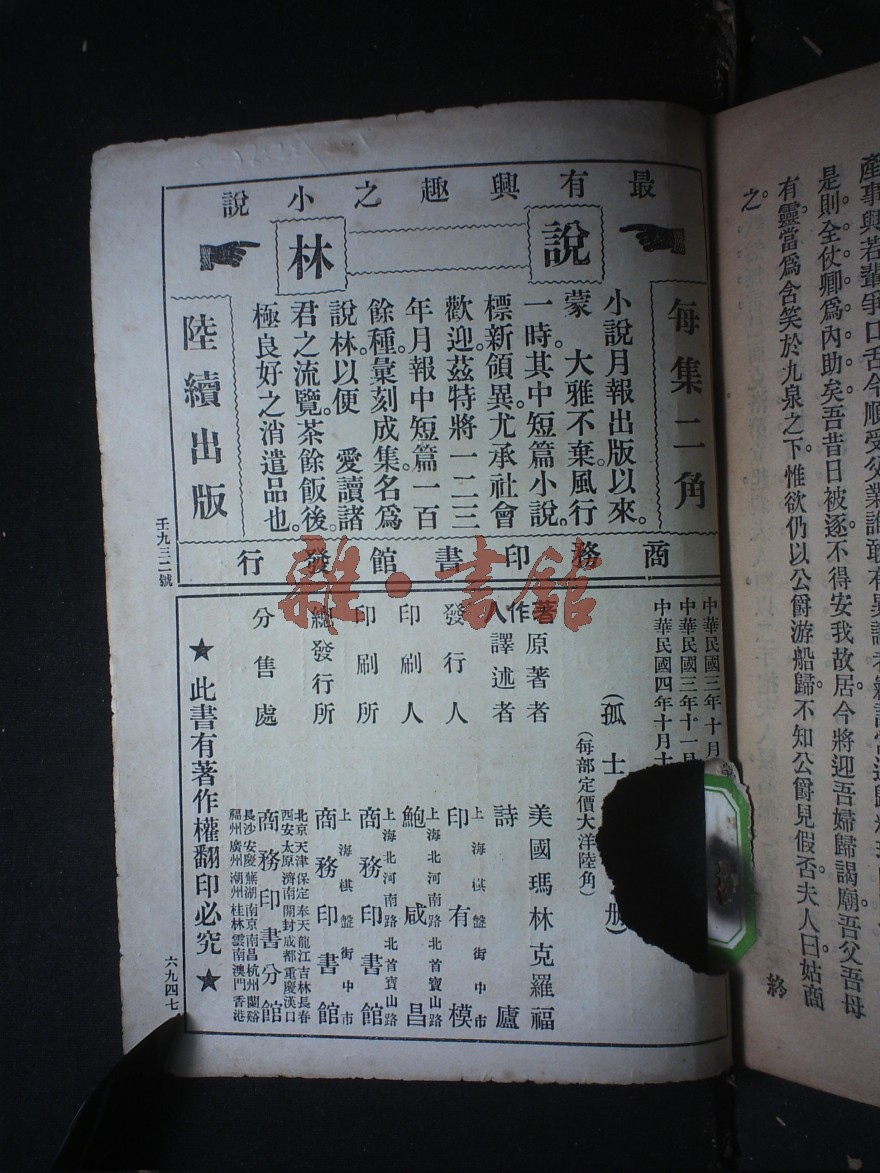 產事與若輩爭口舌今順受父業
是則全仗卿爲內助矣吾昔日被逐不得安我故居今將迎吾婦歸謁廟吾父吾母
有靈當爲含笑於九泉之下惟欲仍以公爵游船歸不知公爵見假否夫人曰姑商
之
終
最有興趣之小說
說林
每集二角
小說月報出版以來
蒙　大雅不棄風行
一時其中短篇小說
標新領異尤承社會
歡迎茲特將一二三
年月報中短篇一百
餘種彙刻成集名爲
說林以便　愛讀諸
君之流覽茶餘飯後
極良好之消遣品也
陸續出版
商務印書館發行
壬九三二號
雜·書館
中華民國三年十月
中華民國三年十一月
中華民國四年十月
（孤士　冊）
（每部定價大洋陸角）
著作人
原著者　美國瑪林克羅福
譯述者　詩廬
發行人　上海棋盤街中市　印有模
印刷人　上海北河南路北首寶山路　鮑咸昌
印刷所　上海北河南路北首寶山路　商務印書館
總發行所　上海棋盤街中市　商務印書館
分售處
北京天津保定奉天龍江吉林長春
西安太原濟南開封成都重慶漢口
商務印書分館
長沙安慶蕪湖南京南昌杭州蘭谿
福州廣州潮州桂林雲南澳門香港
★此書有著作權翻印必究★
六九四七